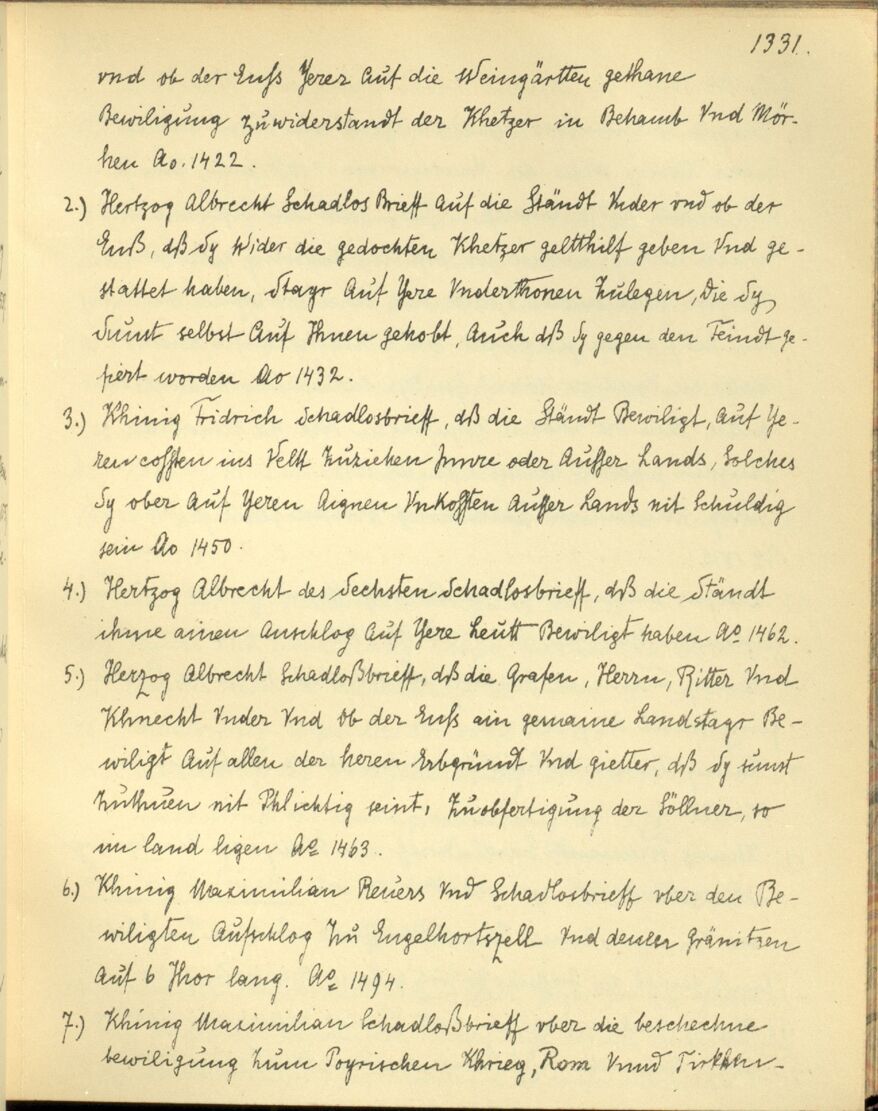 1331.
vnd ob der Enſs Yerer Auf die Weingärtten gethane
Bewiligung Zuwiderstandt der Khetzer in Behamb Vnd Mör-
hen Ao. 1422.
2.) Hertzog Albrecht Schadlos Brieff Auf die Ständt Vnder vnd ob der
Enß, dß Sy Wider die gedochten Khetzer geltthilf geben Vnd ge-
stattet haben, Stayr Auf Yere Vnderthonen Zulegen, die Sy
Sunst selbst Auf Ihnen gehobt, Auch dß Sy gegen den Feindt ge-
fiert worden Ao 1432.
3.) Khinig Fridrich Schadlosbrieff, dß die Ständt Bewiligt, Auf Ye-
ren cossten ins Veltt Zuziehen Innre oder Ausser Lands, Solches
Sy ober Auf Yeren Aignen Vnkossten Ausser Lands nit Schuldig
sein Ao 1450.
4.) Hertzog Albrecht des Sechsten Schadlosbrieff, dß die Ständt
ihme ainen Anschlog Auf Yere Leutt Bewiligt haben Ao 1462.
5.) Herzog Albrecht Schadloßbrieff, dß die Grafen, Herrn, Ritter Vnd
Khnecht Vnder Vnd Ob der Enſs ain gemaine Landstayr Be-
wiligt Auf allen der heren Erbgründt Vnd gietter, dß Sy sunst
Zuthuen nit Phlichtig seint, Zuobfertigung der Söllner, so
im land ligen Ao 1463.
6.) Khinig Maximilian Reuers Vnd Schadlosbrieff vber den Be-
wiligten Aufschlog Zu Engelhortszell Vnd denen Gränitzen
Auf 6 Jhor lang. Ao 1494.
7.) Khinig Maximilian Schadloßbrieff vber die beschechne
bewiligung Zum Poyrischen Khrieg, Rom Vnnd Tirkhen-